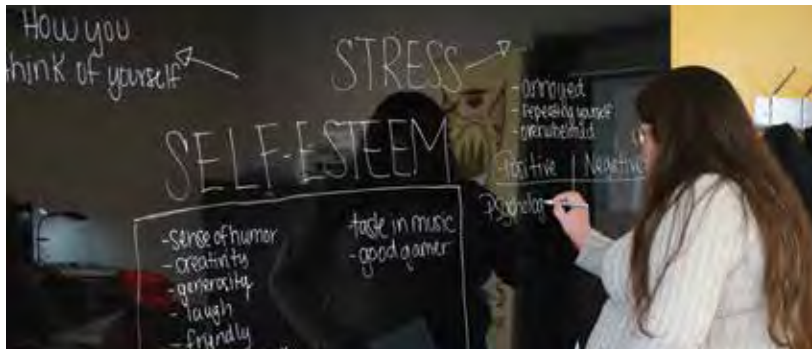 How you
think of yourself
STRESS
- annoyed
- repeating yourself
- overwhelmed
Positive | Negative
Psycholog
SELF-ESTEEM
- sense of humor
- creativity
- generosity
- laugh
- friendly
- taste in music
- good gamer